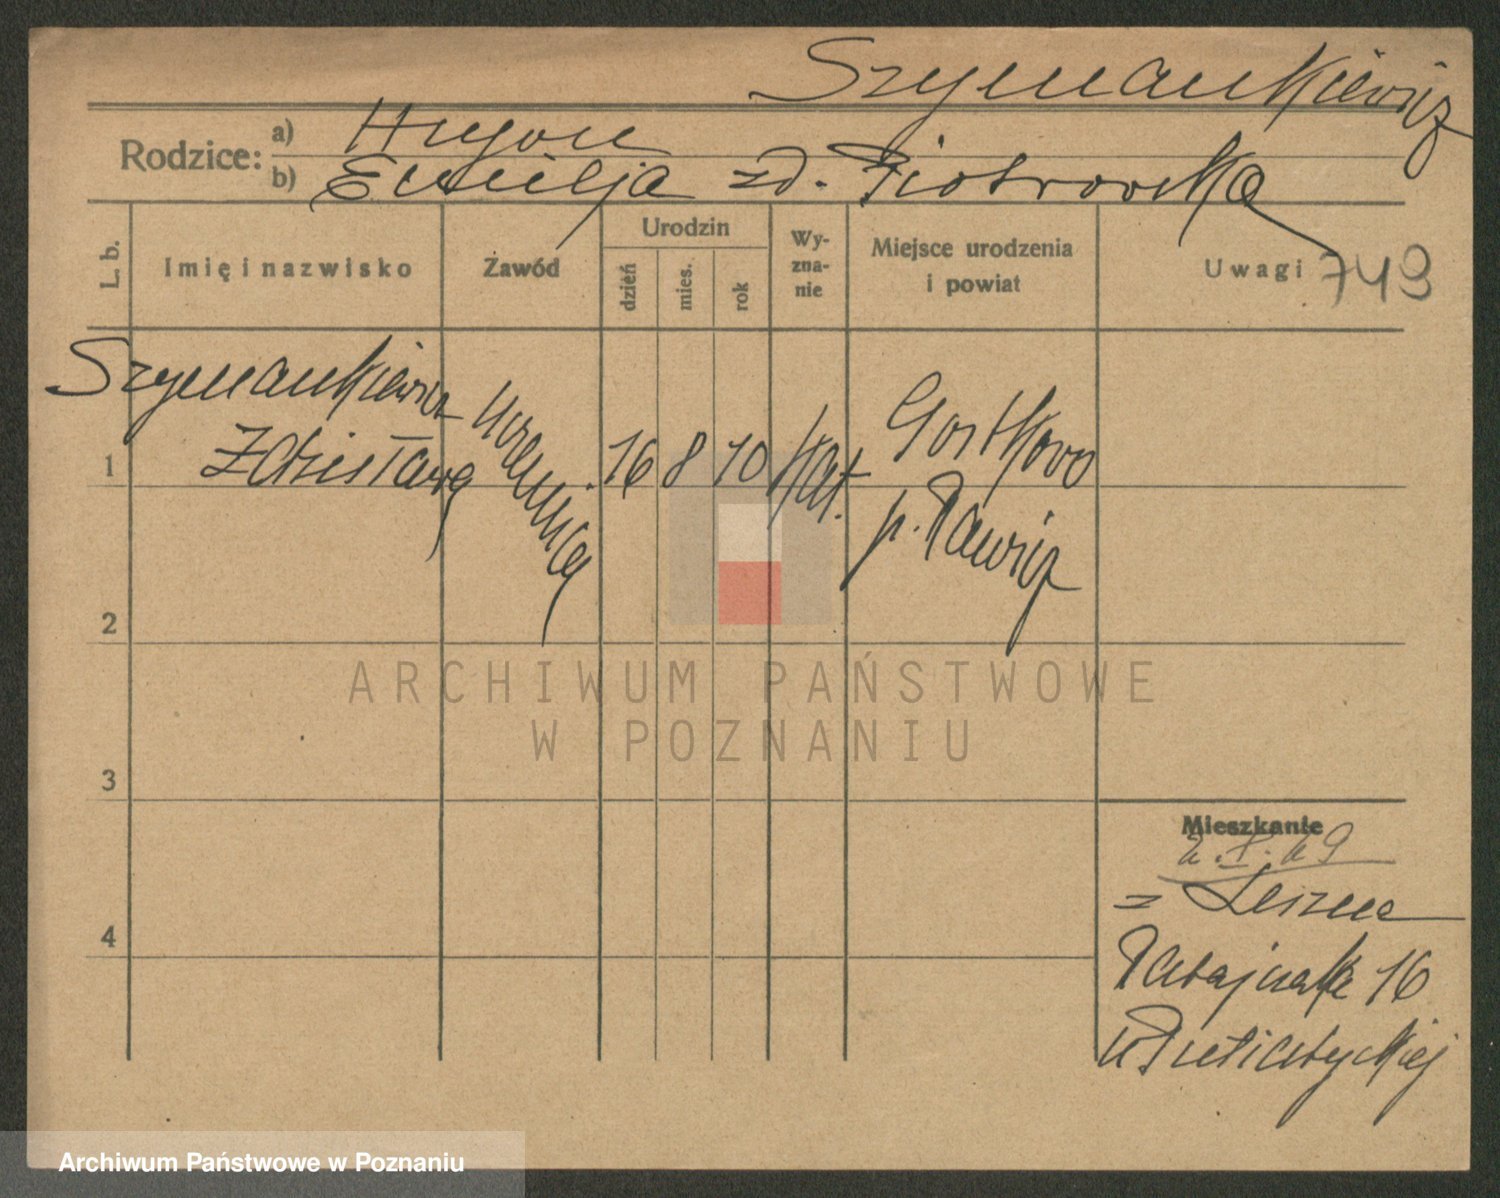 Szymankiewicz
Rodzice:
a) Hugon
b) Emilja zd. Piotrowska
L. b.
Imię i nazwisko
Zawód
Urodzin
dzień
mies.
rok
Wy-
zna-
nie
Miejsce urodzenia
i powiat
Uwagi 749
1
Szymankiewicz
Zdzisława
uczennica
16 8 10
kat.
Gostkowo
p. Rawicz
2
3
4
ARCHIWUM PAŃSTWOWE
W POZNANIU
Mieszkanie
z Leszna
Ratajczaka 16
Archiwum Państwowe w Poznaniu